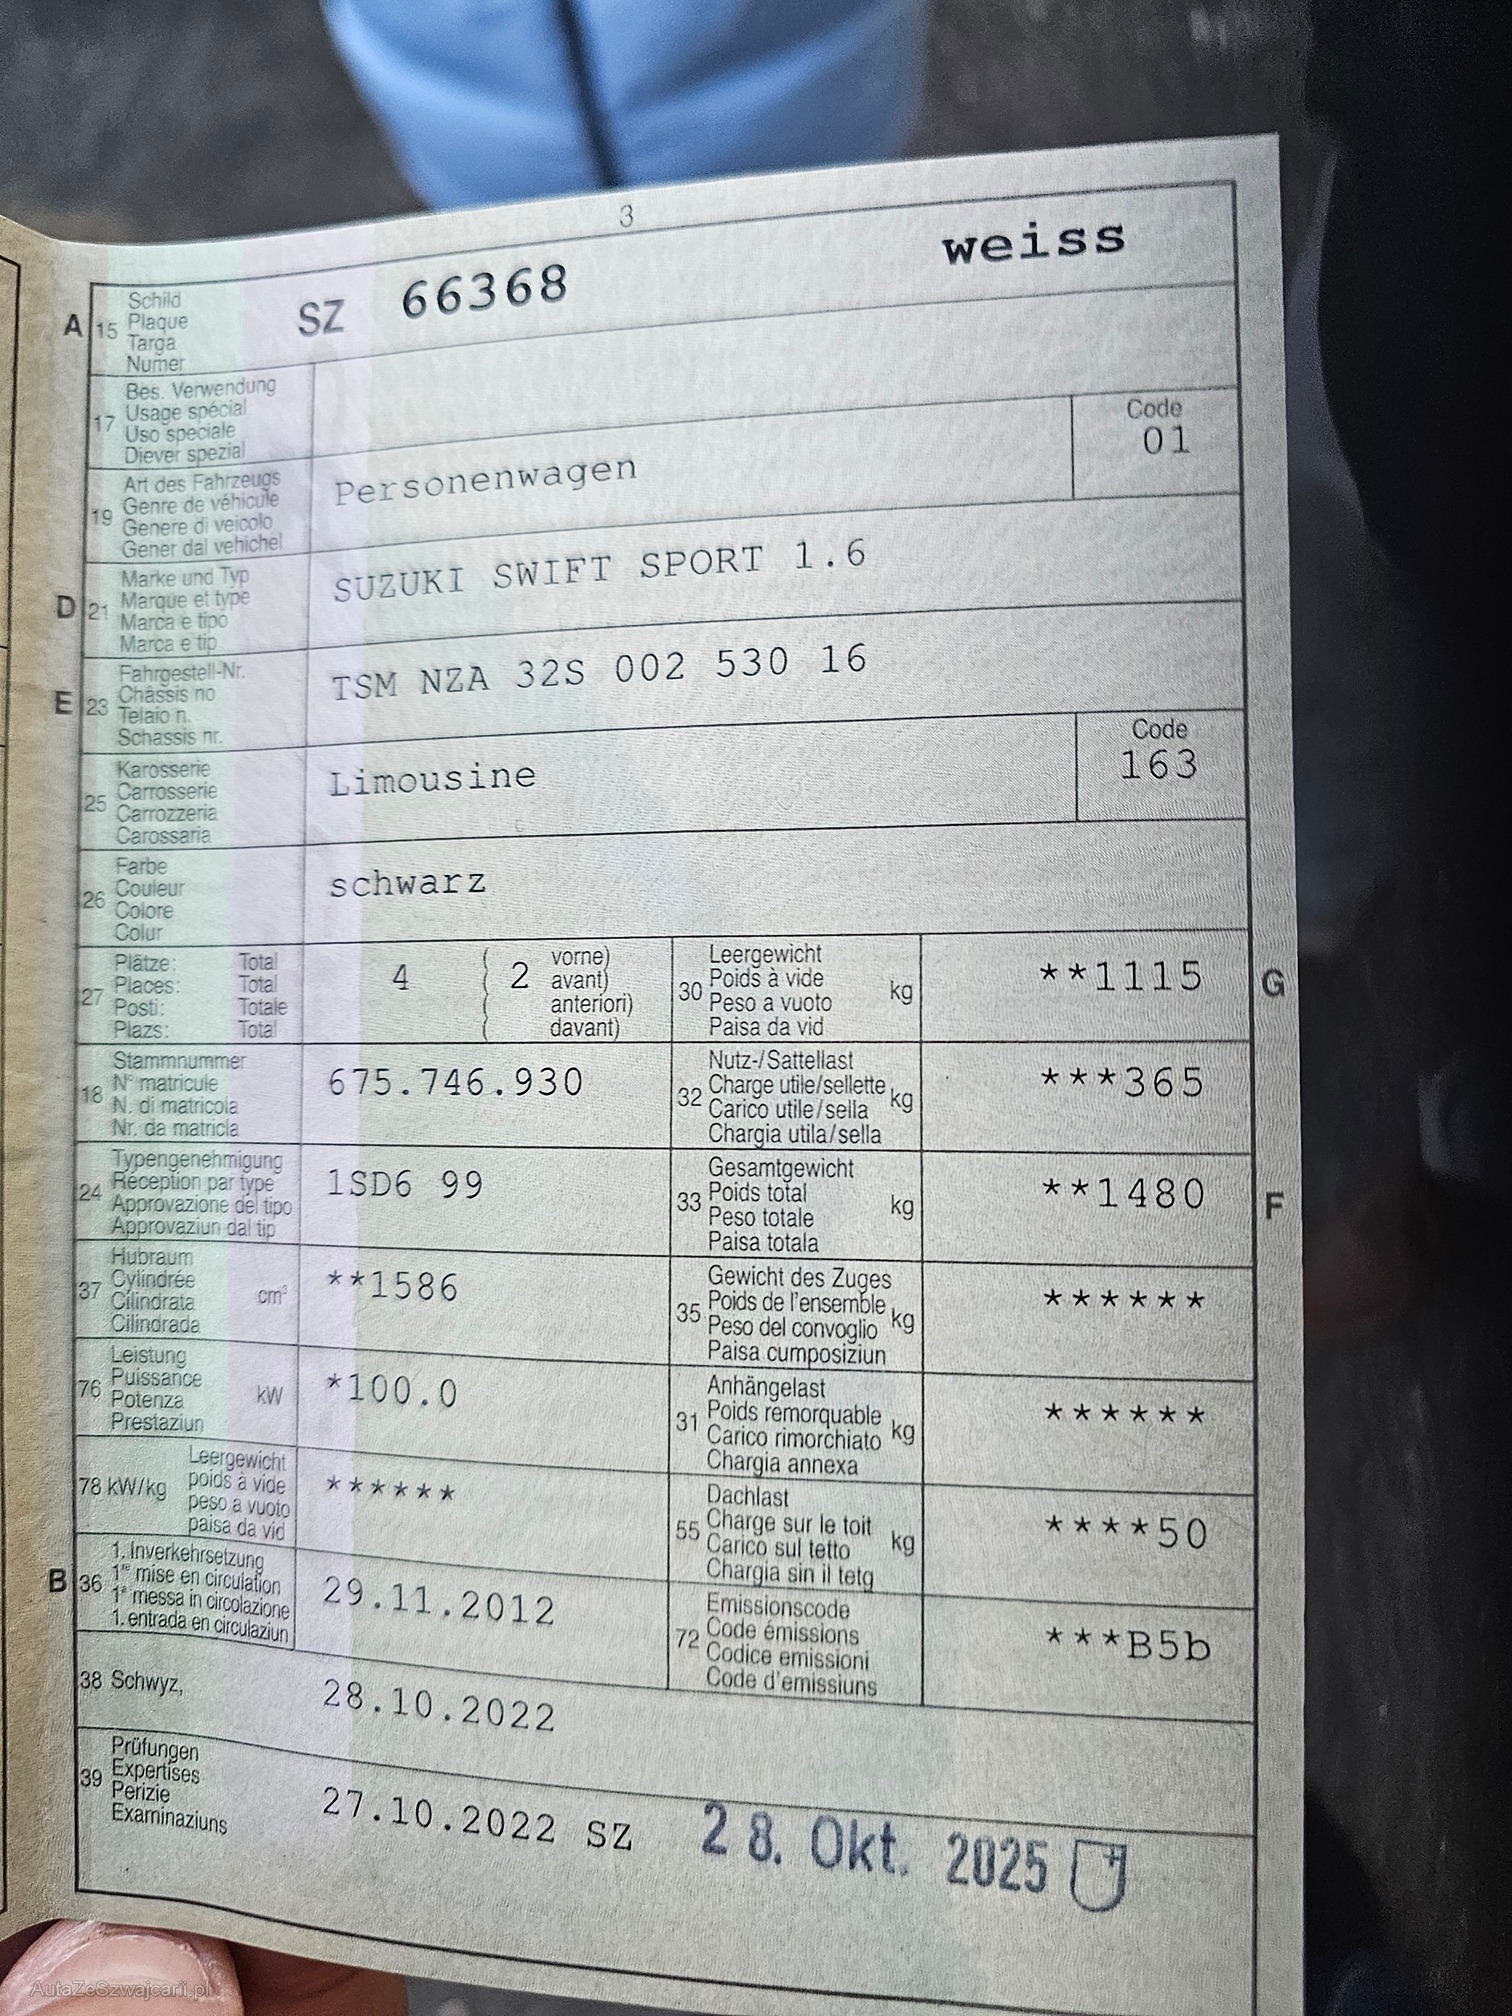 3
A 15 Schild SZ 66368 weiss
Plaque
Targa
Numer
17 Bes. Verwendung
Usage spécial
Uso speciale
Diever spezial
19 Art des Fahrzeugs Personenwagen Code
Genre de véhicule 01
Genere di veicolo
Gener dal vehichel
D 21 Marke und Typ SUZUKI SWIFT SPORT 1.6
Marque et type
Marca e tipo
Marca e tip
E 23 Fahrgestell-Nr. TSM NZA 32S 002 530 16
Châssis no
Telaio n.
Schassis nr.
25 Karosserie Limousine Code
Carrosserie 163
Carrozzeria
Carossaria
26 Farbe schwarz
Couleur
Colore
Colur
27 Plätze: Total 4 ( 2 vorne)
Places: Total ( avant)
Posti: Totale ( anteriori)
Plazs: Total ( davant)
30 Leergewicht kg **1115 G
Poids à vide
Peso a vuoto
Paisa da vid
18 Stammnummer 675.746.930
N° matricule
N. di matricola
Nr. da matricla
32 Nutz-/Sattellast kg ***365
Charge utile/sellette
Carico utile/sella
Chargia utila/sella
24 Typengenehmigung 1SD6 99
Réception par type
Approvazione del tipo
Approvaziun dal tip
33 Gesamtgewicht kg **1480 F
Poids total
Peso totale
Paisa totala
37 Hubraum cm³ **1586
Cylindrée
Cilindrata
Cilindrada
35 Gewicht des Zuges kg ******
Poids de l'ensemble
Peso del convoglio
Paisa cumposiziun
76 Leistung kW *100.0
Puissance
Potenza
Prestaziun
31 Anhängelast kg ******
Poids remorquable
Carico rimorchiato
Chargia annexa
78 kW/kg Leergewicht ******
poids à vide
peso a vuoto
paisa da vid
55 Dachlast kg ****50
Charge sur le toit
Carico sul tetto
Chargia sin il tetg
B 36 1. Inverkehrsetzung 29.11.2012
1re mise en circulation
1a messa in circolazione
1. entrada en circulaziun
72 Emissionscode ***B5b
Code émissions
Codice emissioni
Code d'emissiuns
38 Schwyz, 28.10.2022
39 Prüfungen 27.10.2022 SZ 28. Okt. 2025
Expertises
Perizie
Examinaziuns
AutaZeSzwajcarii.pl